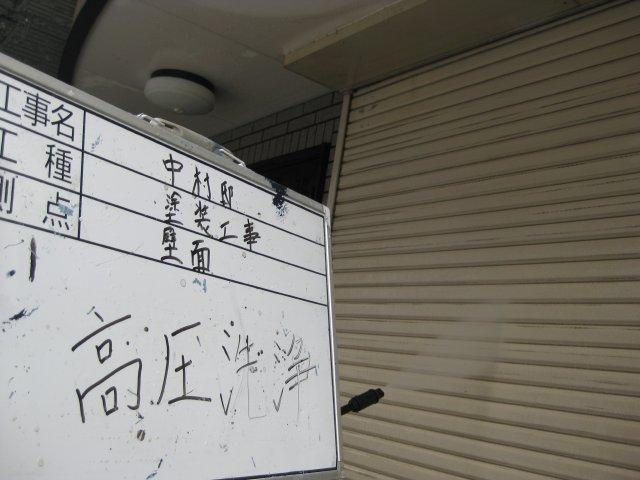 工事名 中村邸
工種 塗装工事
測点 壁面
高圧洗浄